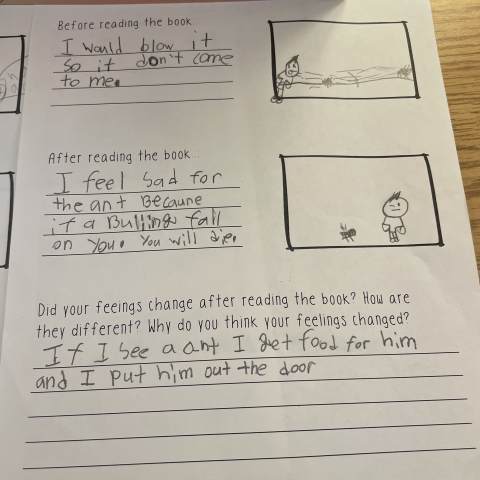 Before reading the book...
I would blow it
so it don't come
to me.
After reading the book...
I feel sad for
the ant Becaune
if a Bullings fall
on you. You will die.
Did your feeings change after reading the book? How are
they different? Why do you think your feelings changed?
If I see a ant I get food for him
and I put him out the door